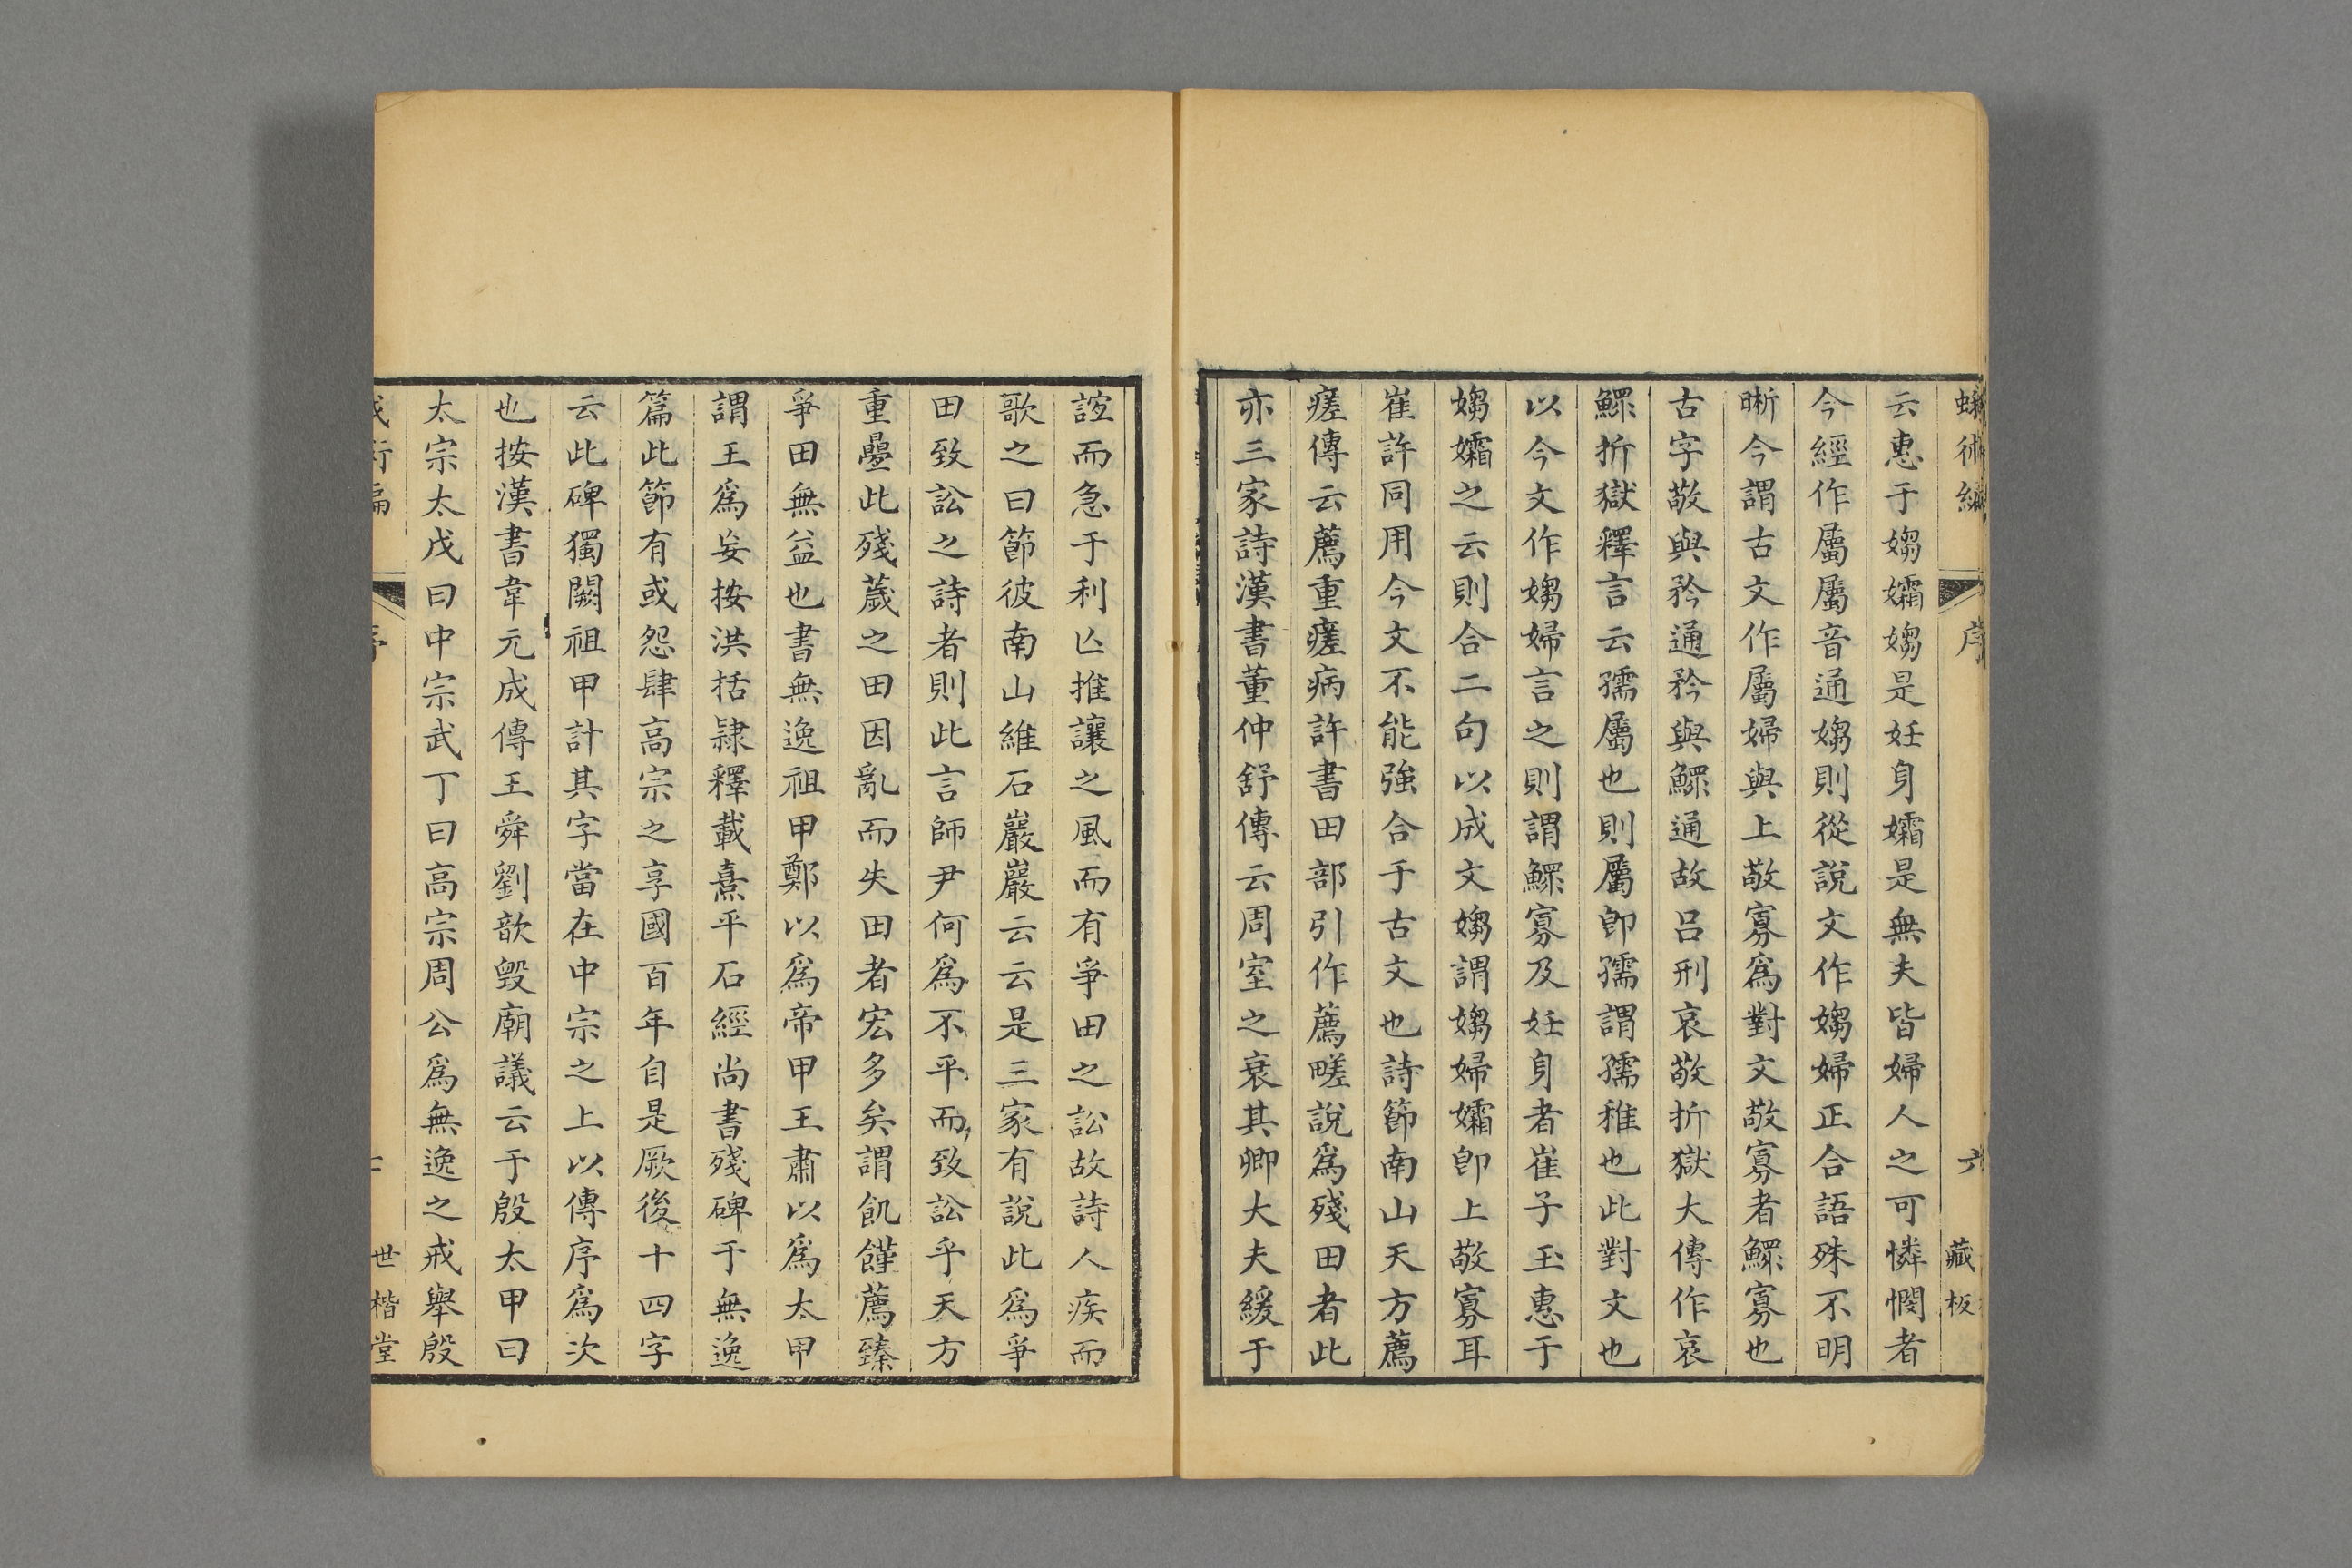 蛾術編 序 六 藏板
云惠于媰孀媰是妊身孀是無夫皆婦人之可憐憫者
今經作屬屬音通媰則從說文作媰婦正合語殊不明
晰今謂古文作屬婦與上敬寡爲對文敬寡者鰥寡也
古字敬與矜通矜與鰥通故呂刑哀敬折獄大傳作哀
鰥折獄釋言云孺屬也則屬卽孺謂孺稚也此對文也
以今文作媰婦言之則謂鰥寡及妊身者崔子玉惠于
媰孀之云則合二句以成文媰謂媰婦孀卽上敬寡耳
崔許同用今文不能強合于古文也詩節南山天方薦
瘥傳云薦重瘥病許書田部引作薦𤺊說爲殘田者此
亦三家詩漢書董仲舒傳云周室之衰其卿大夫緩于
誼而急于利亾推讓之風而有爭田之訟故詩人疾而
歌之曰節彼南山維石巖巖云云是三家有說此爲爭
田致訟之詩者則此言師尹何爲不平而致訟乎天方
重疊此殘薉之田因亂而失田者宏多矣謂飢饉薦臻
爭田無益也書無逸祖甲鄭以爲帝甲王肅以爲太甲
謂王爲妄按洪括隷釋載熹平石經尚書殘碑于無逸
篇此節有或怨肆高宗之享國百年自是厥後十四字
云此碑獨闕祖甲計其字當在中宗之上以傳序爲次
也按漢書韋元成傳王舜劉歆毀廟議云于殷太甲曰
太宗太戊曰中宗武丁曰高宗周公爲無逸之戒舉殷
世楷堂